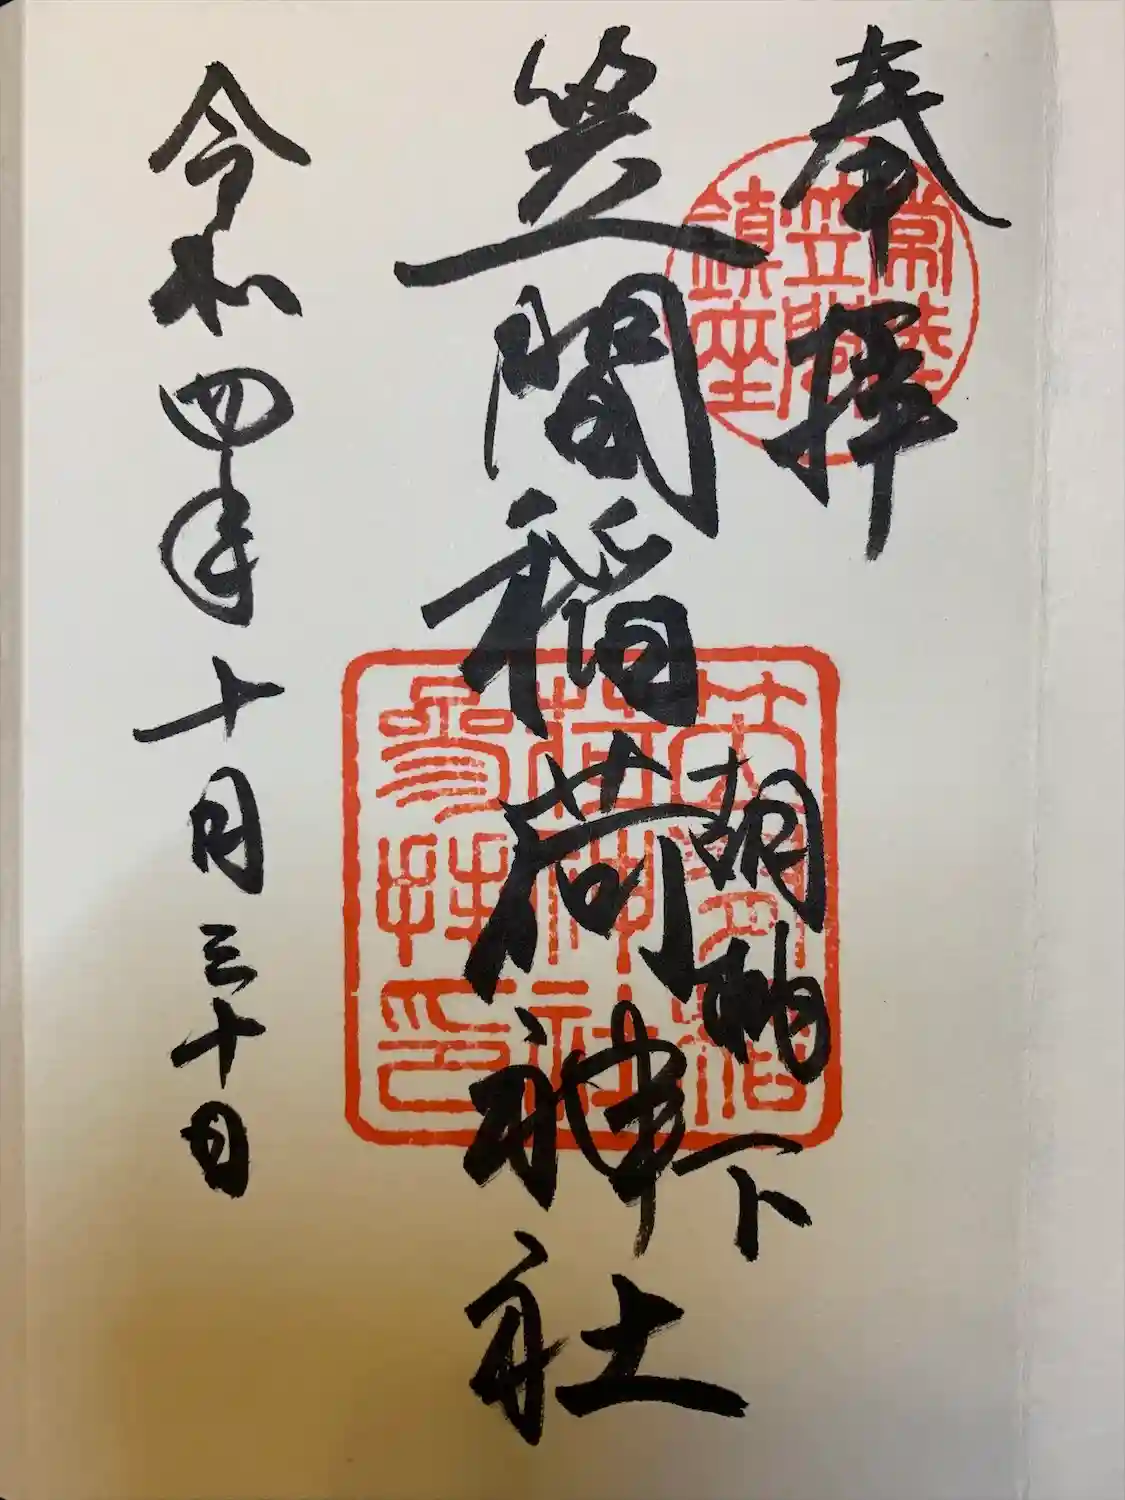 奉拝
常陸
笠間
鎮座
胡桃下
笠間稲荷神社
笠間稲
荷神社
参拝印
令和四年十月三十日